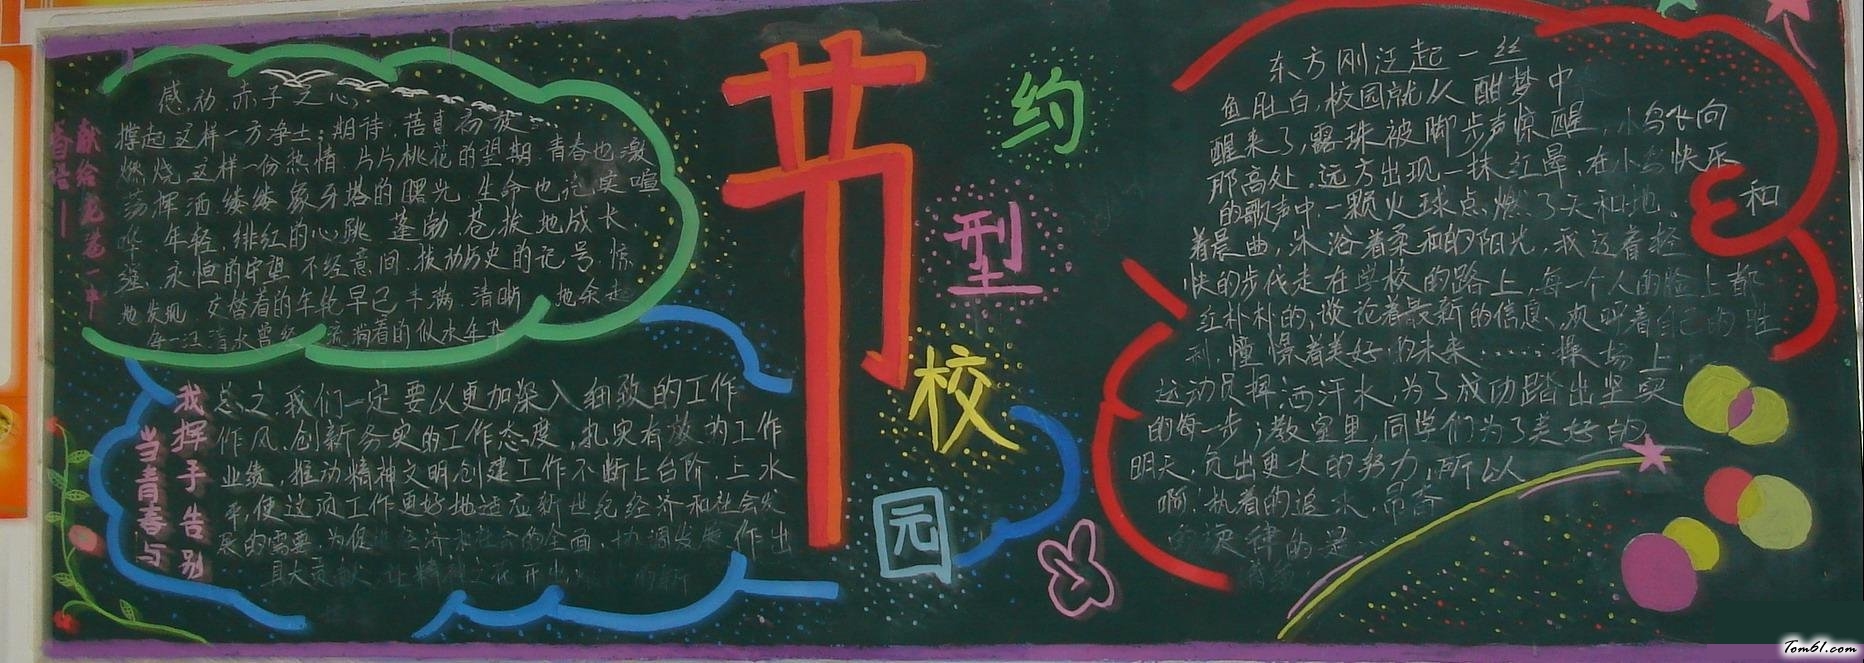 节约型校园
献给龙港一中
春语
感动赤子之心,
撑起这样一方净土;期待,蓓蕾初放
燃烧这样一份热情 片片桃花的望期 青春也激
荡挥洒 缕缕象牙塔的曙光 生命也
年轻,绯红的心跳 蓬勃,苍拔地成长
永恒的守望 不经意间,拔动历史的记号 惊
地发现 交替着的年轮早已丰满 清晰 地
每一汪清水曾经 流淌着的似水年华
我挥手告别
当青春与
总之,我们一定要从更加深入细致的工作
作风,创新务实的工作态度,扎实有效的工作
业绩,推动精神文明创建工作不断上台阶,上水
平,使这项工作更好地适应新世纪经济和社会发
展的需要 为促 经济和社会的全面,协调发展 作出
让精神之花开出
东方刚泛起一丝
鱼肚白,校园就从酣梦中
醒来了,露珠被脚步声惊醒,小鸟飞向
那高处,远方出现一抹红晕,在小鸟快乐
的歌声中,一颗火球点燃了天和地。 和
着晨曲,沐浴着柔和的阳光,我迈着轻
快的步伐走在学校的路上,每一个人的脸上都
红朴朴的,谈论着最新的信息,欢呼着自己的胜
利,憧憬着美好的未来……操场上
运动员挥洒汗水,为了成功踏出坚实
的每一步;教室里,同学们为了美好的
明天,负出更大的努力,所以
啊!执着的追求
的旋律的是…
Tom61.com